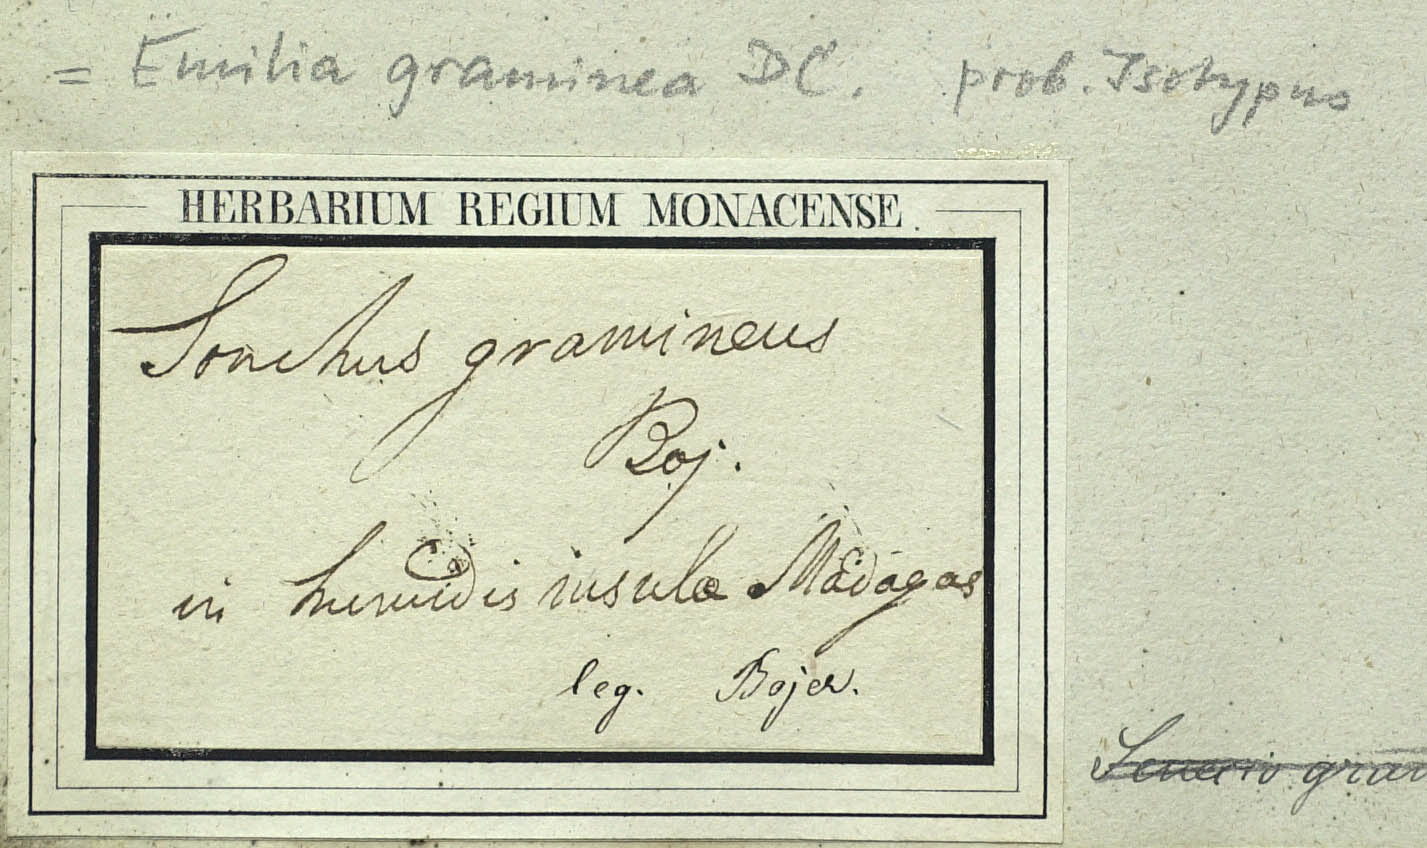 = Emilia graminea DC. prob. Isotypus
HERBARIUM REGIUM MONACENSE.
Sonchus gramineus
Boj.
in humidis insula Madagas
leg. Bojer.
Senecio gram